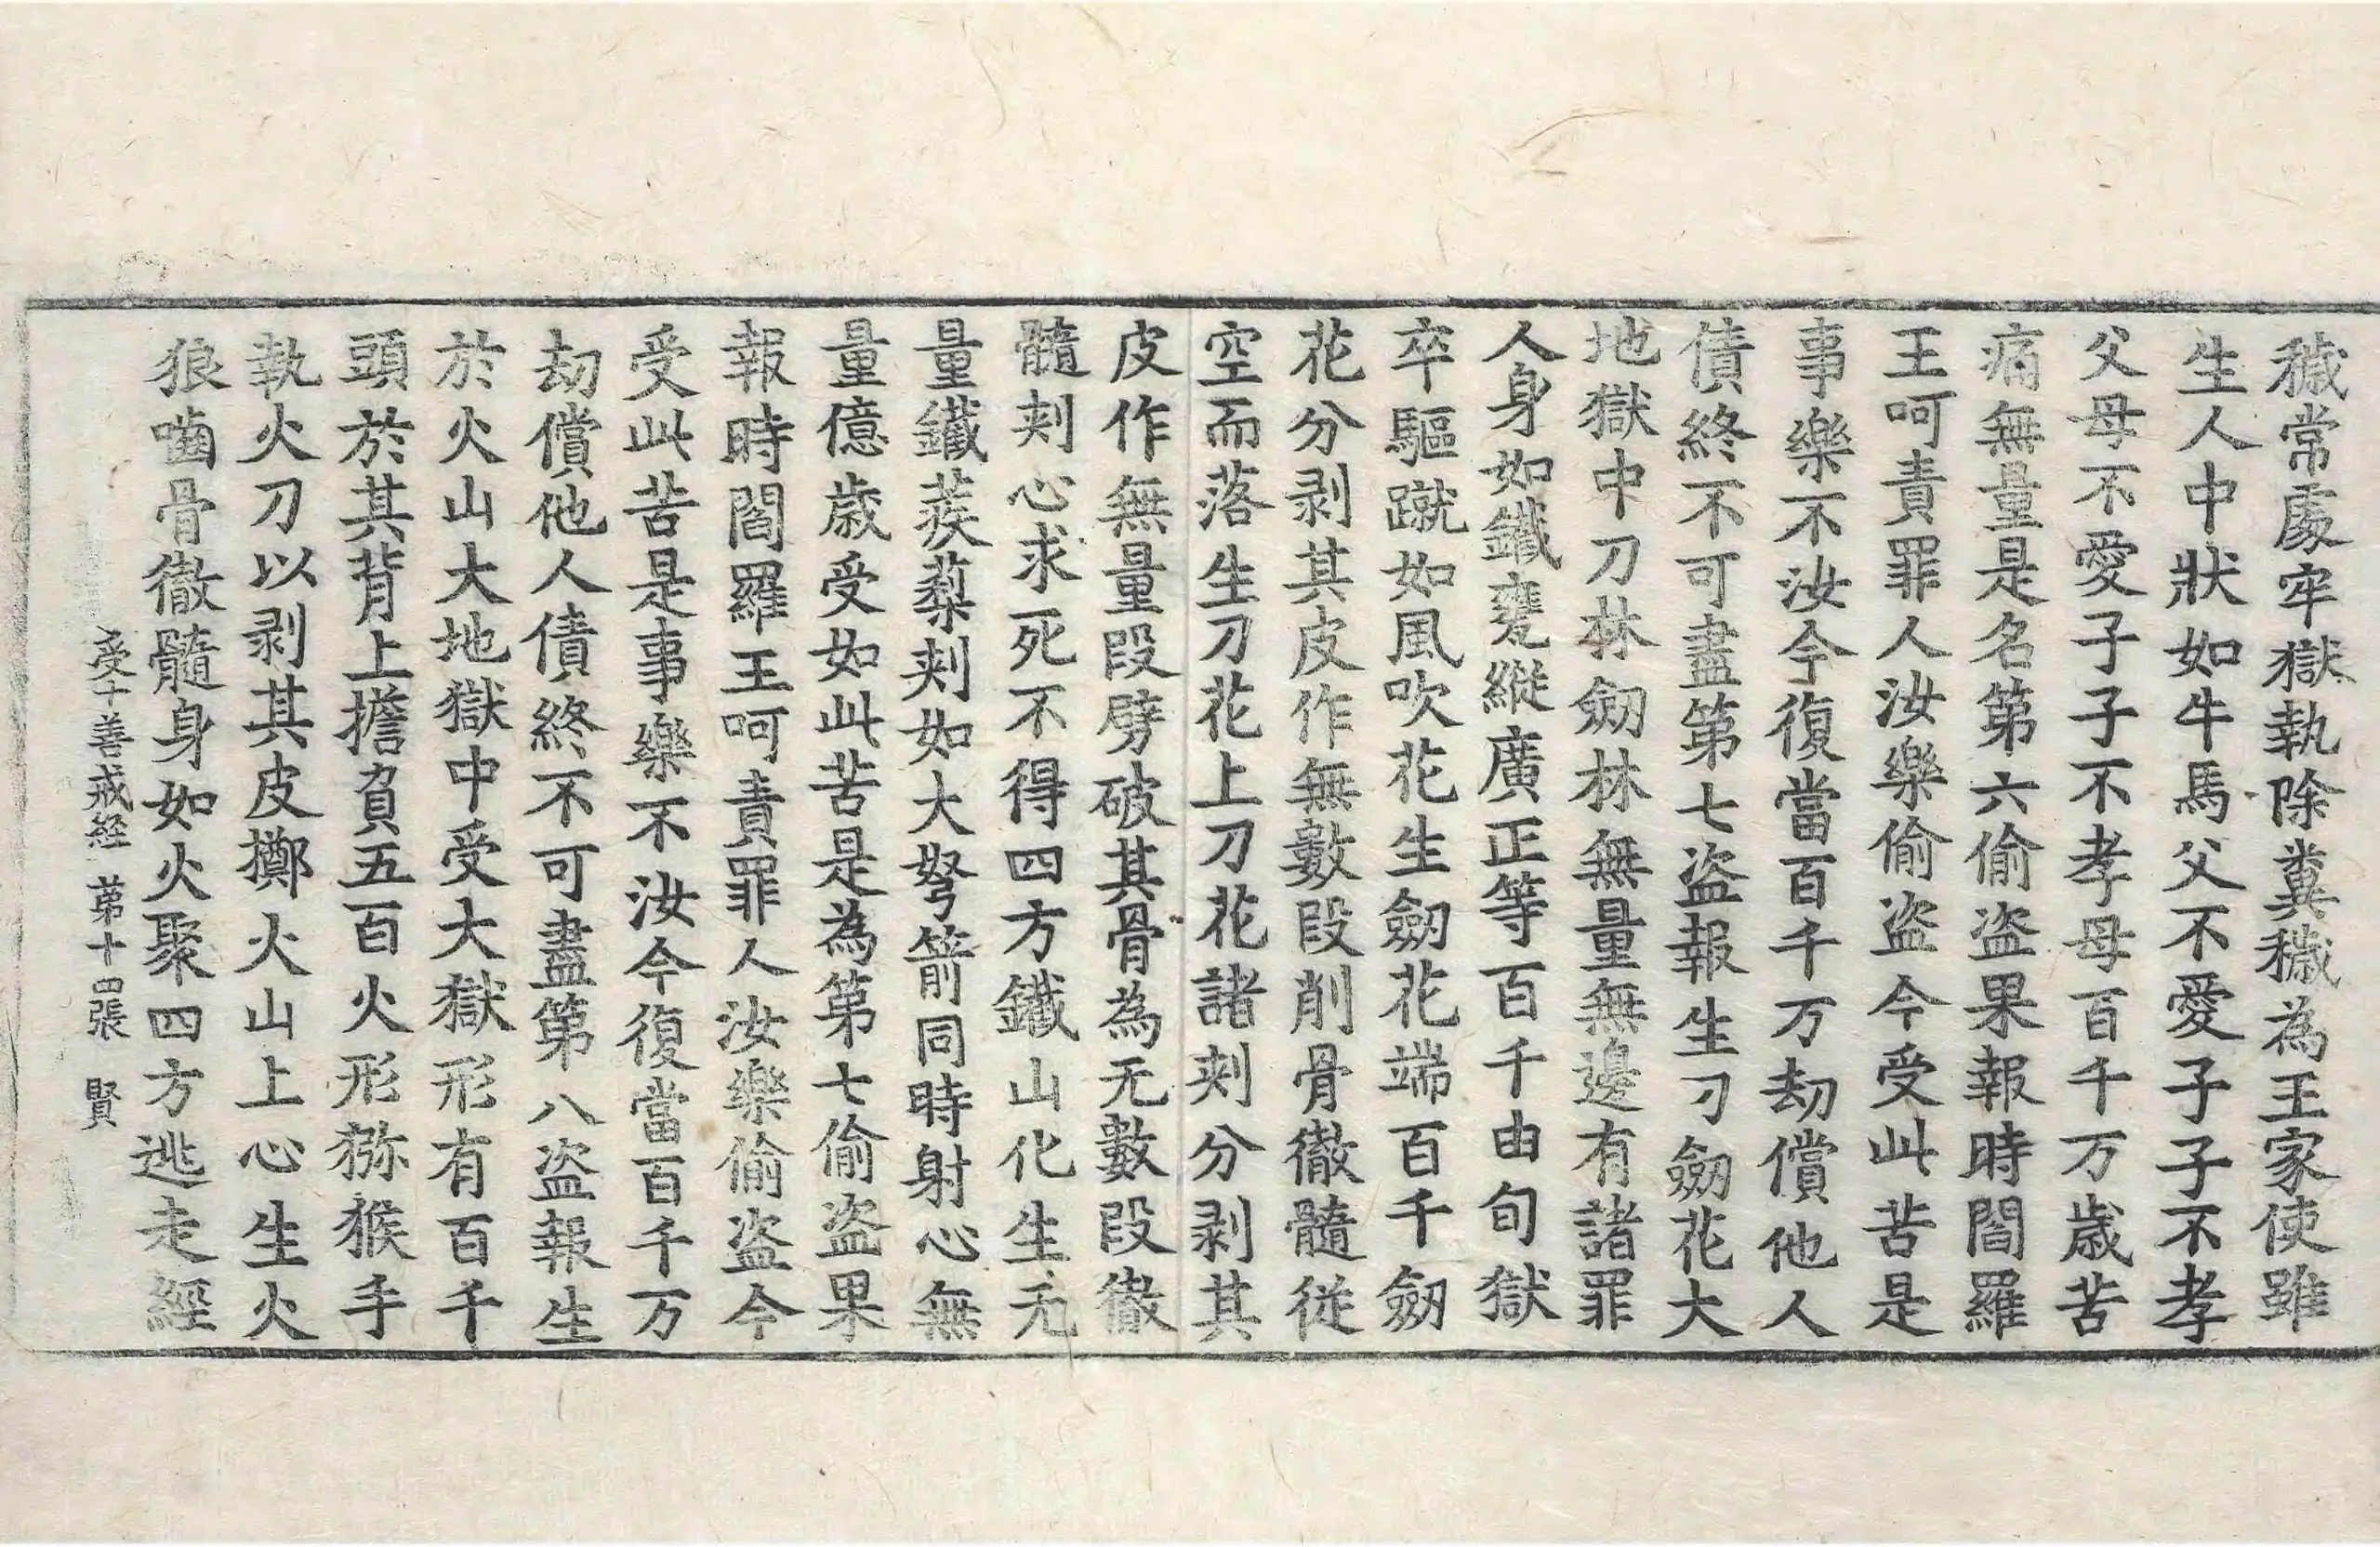 穢常處牢獄執除糞穢為王家使雖
生人中狀如牛馬父不愛子子不孝
父母不愛子子不孝母百千万歲苦
痛無量是名第六偷盗果報時閻羅
王呵責罪人汝樂偷盗今受此苦是
事樂不汝今復當百千万劫償他人
債終不可盡第七盗報生刀劒花大
地獄中刀林劒林無量無邊有諸罪
人身如鐵甕縱廣正等百千由旬獄
卒驅蹴如風吹花生劒花端百千劒
花分剥其皮作無數段削骨徹髓從
空而落生刀花上刀花諸刾分剥其
皮作無量段劈破其骨為无數段徹
髓刾心求死不得四方鐵山化生无
量鐵蒺蔾刾如大弩箭同時射心無
量億歲受如此苦是為第七偷盗果
報時閻羅王呵責罪人汝樂偷盗今
受此苦是事樂不汝今復當百千万
劫償他人債終不可盡第八盗報生
於火山大地獄中受大獄形有百千
頭於其背上擔負五百火形猕猴手
執火刀以剥其皮擲火山上心生火
狼嚙骨徹髓身如火聚四方逃走經
受十善戒經 第十四張 賢